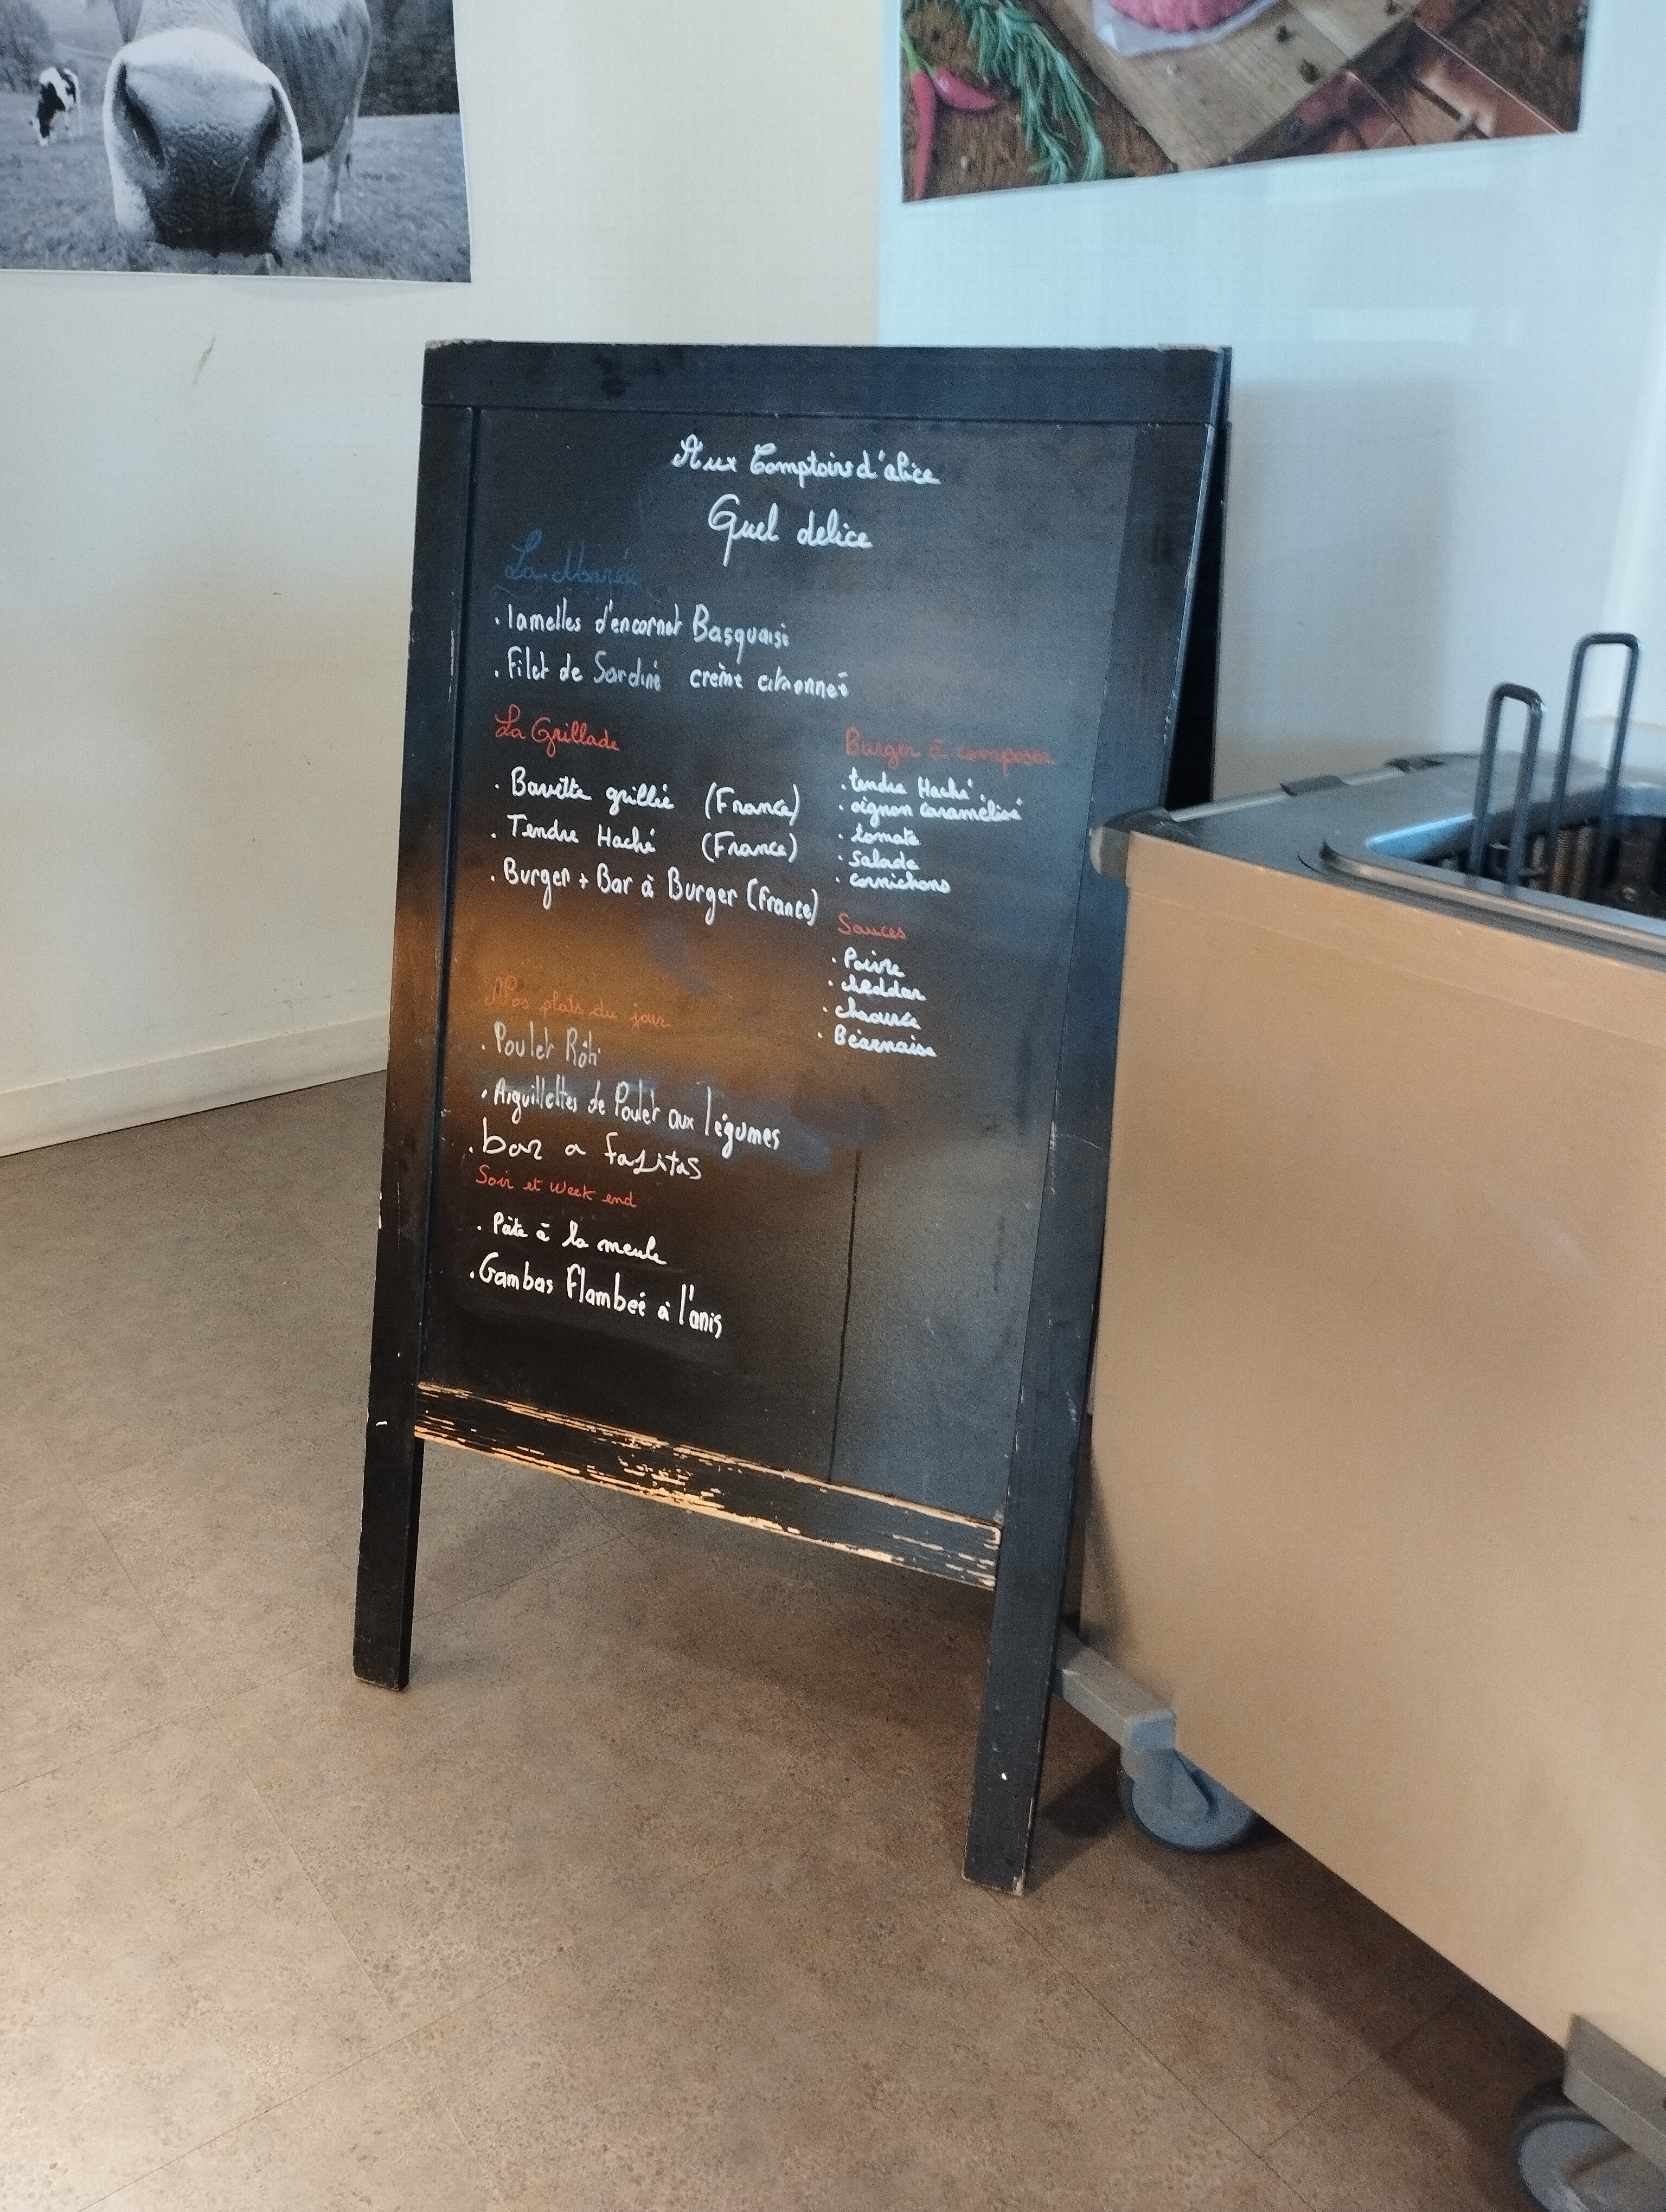 Aux Comptoirs d'alice
Quel delice
La Marée
. lamelles d'encornet Basquaise
. Filet de Sardine crème citronneé
La Grillade
. Bavette grillée (France)
. Tendre Haché (France)
. Burger + Bar à Burger (France)
Burger à composer
. tendre Haché
. oignon caramélisé
. tomate
. Salade
. cornichons
Sauces
. Poivre
. cheddar
. chaource
. Béarnaise
Nos plats du jour
. Poulet Rôti
. Aiguillettes de Poulet aux légumes
. bar a fajitas
Soir et Week end
. Pâte à la meule
. Gambas Flambeé à l'anis